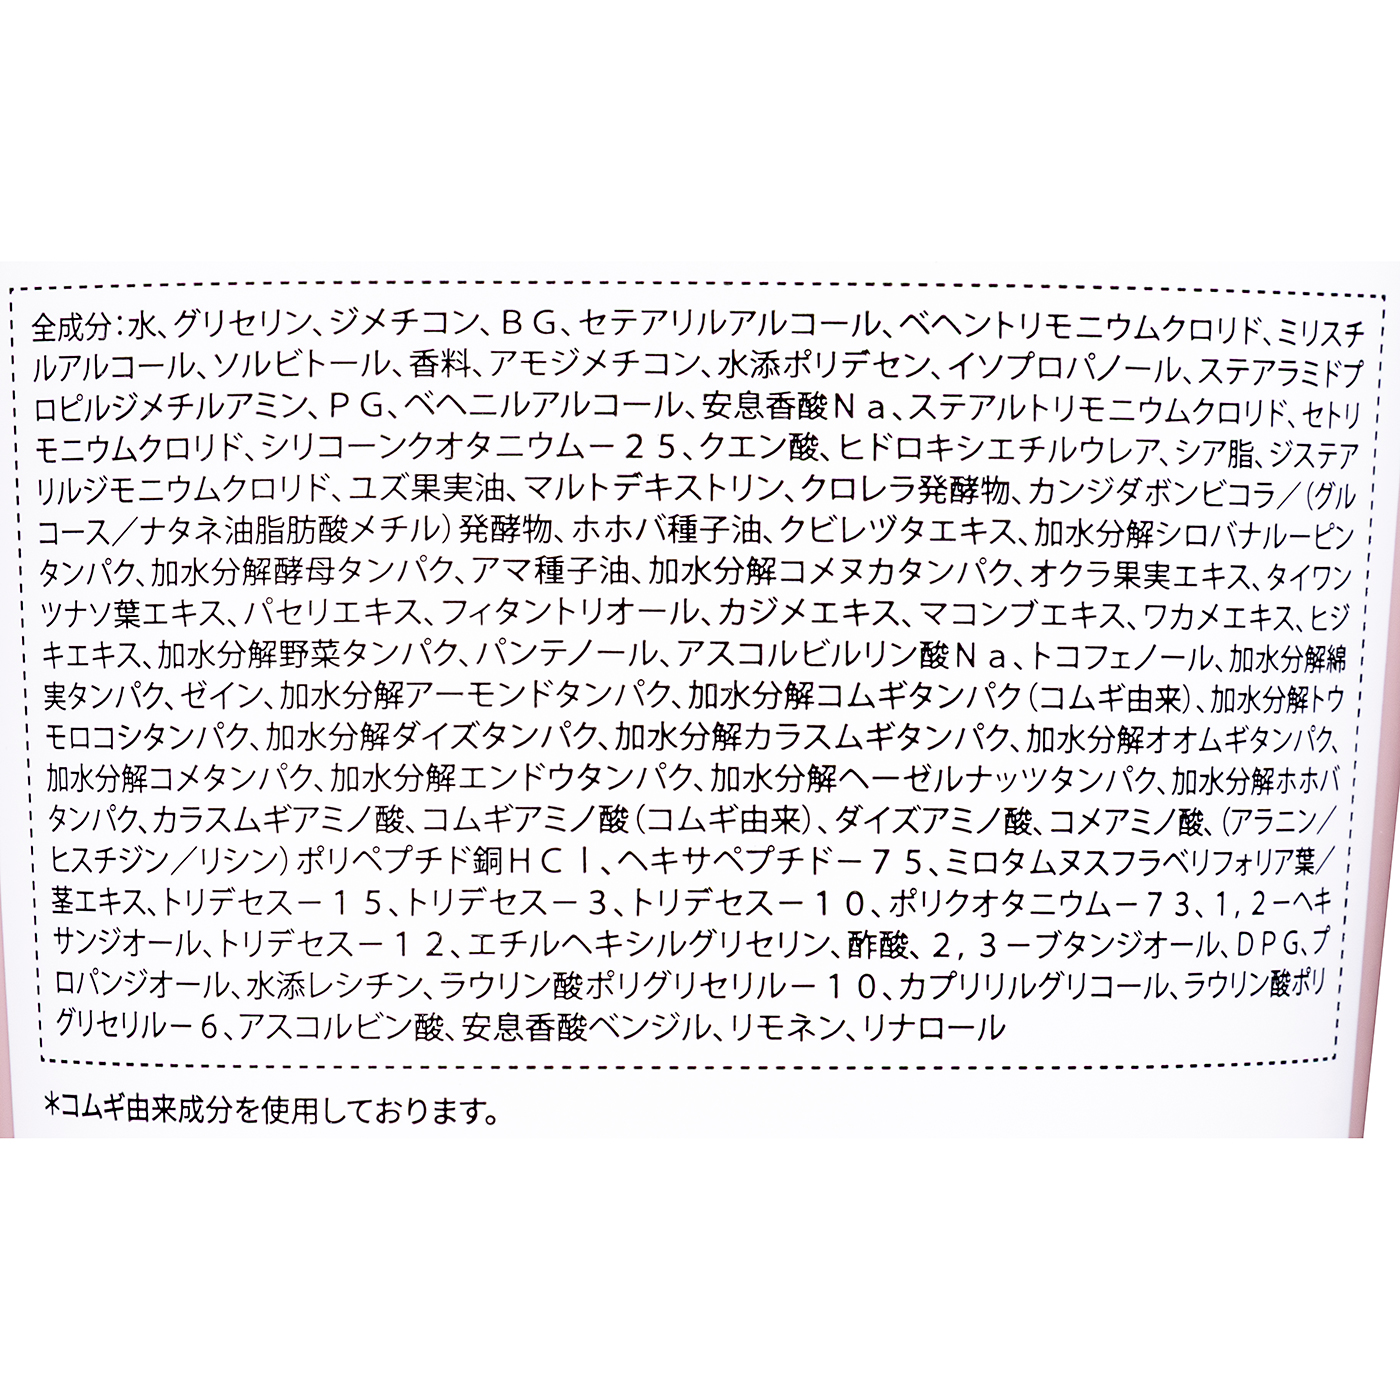 全成分：水、グリセリン、ジメチコン、ＢＧ、セテアリルアルコール、ベヘントリモニウムクロリド、ミリスチ
ルアルコール、ソルビトール、香料、アモジメチコン、水添ポリデセン、イソプロパノール、ステアラミドプ
ロピルジメチルアミン、ＰＧ、ベヘニルアルコール、安息香酸Ｎａ、ステアルトリモニウムクロリド、セトリ
モニウムクロリド、シリコーンクオタニウム－２５、クエン酸、ヒドロキシエチルウレア、シア脂、ジステア
リルジモニウムクロリド、ユズ果実油、マルトデキストリン、クロレラ発酵物、カンジダボンビコラ／（グル
コース／ナタネ油脂肪酸メチル）発酵物、ホホバ種子油、クビレヅタエキス、加水分解シロバナルーピン
タンパク、加水分解酵母タンパク、アマ種子油、加水分解コメヌカタンパク、オクラ果実エキス、タイワン
ツナソ葉エキス、パセリエキス、フィタントリオール、カジメエキス、マコンブエキス、ワカメエキス、ヒジ
キエキス、加水分解野菜タンパク、パンテノール、アスコルビルリン酸Ｎａ、トコフェノール、加水分解綿
実タンパク、ゼイン、加水分解アーモンドタンパク、加水分解コムギタンパク（コムギ由来）、加水分解トウ
モロコシタンパク、加水分解ダイズタンパク、加水分解カラスムギタンパク、加水分解オオムギタンパク、
加水分解コメタンパク、加水分解エンドウタンパク、加水分解ヘーゼルナッツタンパク、加水分解ホホバ
タンパク、カラスムギアミノ酸、コムギアミノ酸（コムギ由来）、ダイズアミノ酸、コメアミノ酸、（アラニン／
ヒスチジン／リシン）ポリペプチド銅ＨＣｌ、ヘキサペプチド－７５、ミロタムヌスフラベリフォリア葉／
茎エキス、トリデセス－１５、トリデセス－３、トリデセス－１０、ポリクオタニウム－７３、１，２－ヘキ
サンジオール、トリデセス－１２、エチルヘキシルグリセリン、酢酸、２，３－ブタンジオール、ＤＰＧ、プ
ロパンジオール、水添レシチン、ラウリン酸ポリグリセリル－１０、カプリリルグリコール、ラウリン酸ポリ
グリセリル－６、アスコルビン酸、安息香酸ベンジル、リモネン、リナロール
＊コムギ由来成分を使用しております。